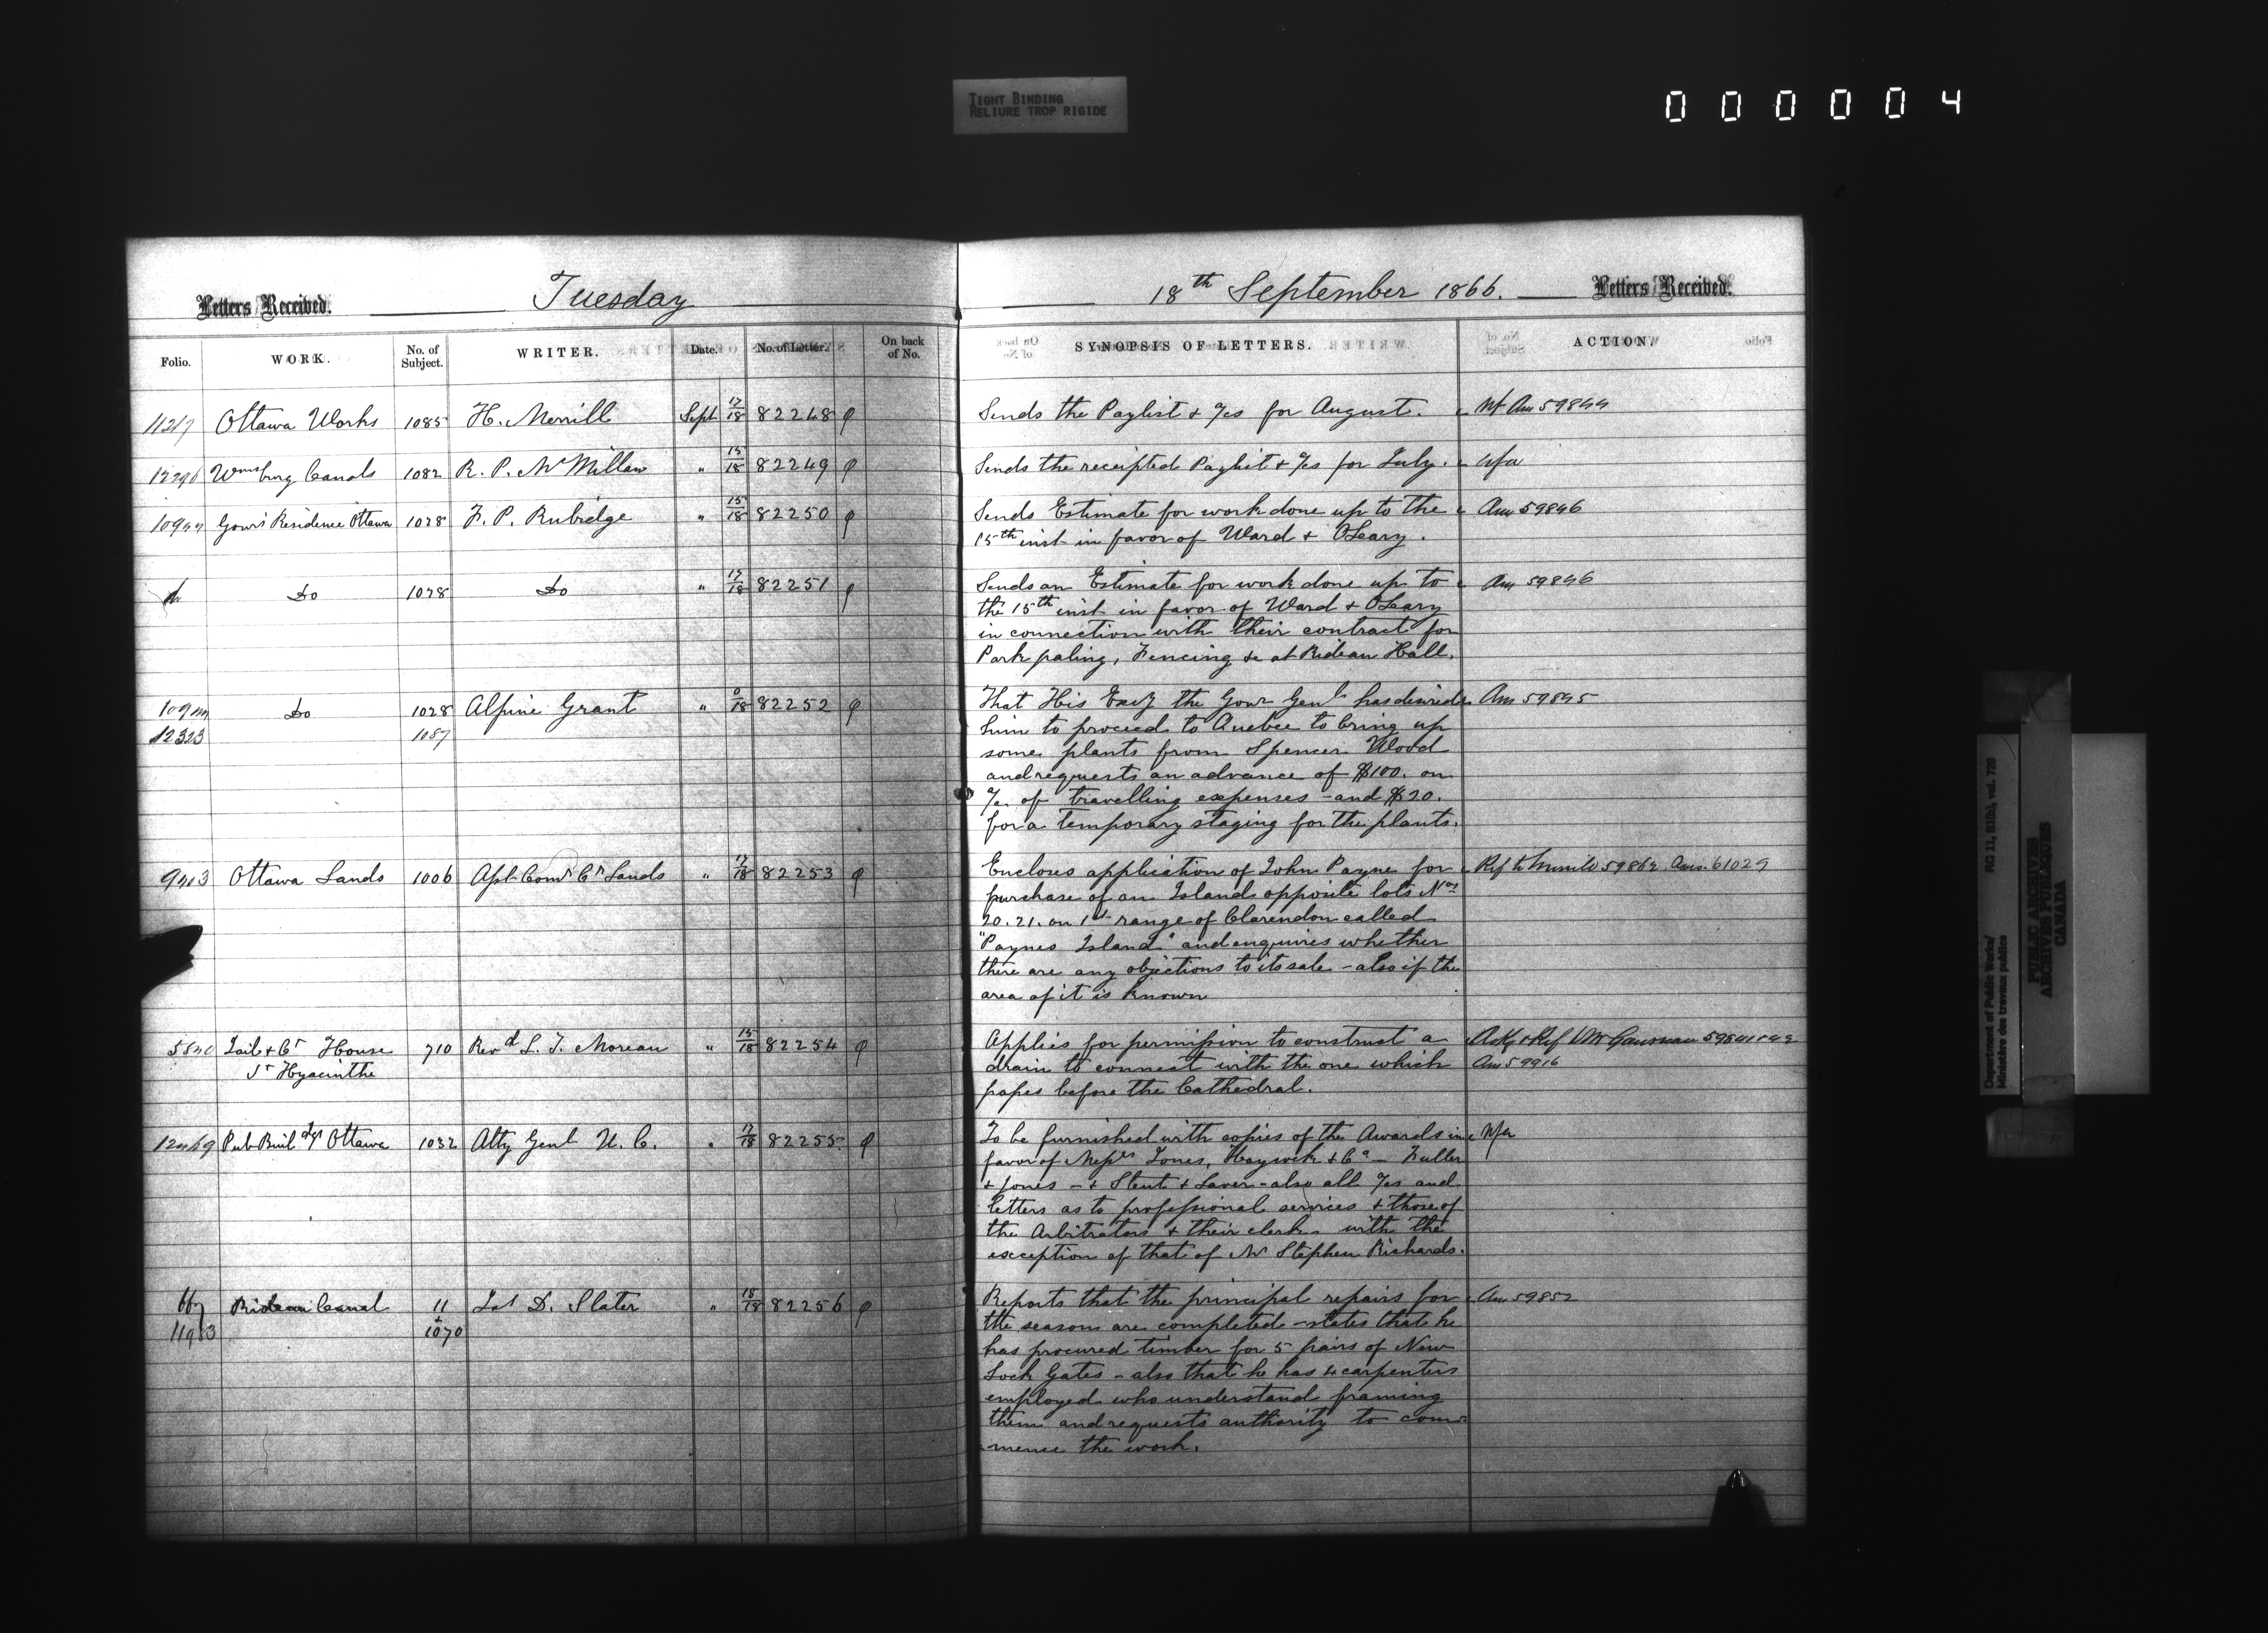 TIGHT BINDING
RELIURE TROP RIGIDE
000004
Letters Received. Tuesday
Folio. WORK. No. of Subject. WRITER. Date. No. of Letter. On back of No.
Ottawa Works 1085 H. Merrill Sept 17/18 82248
Wmsburg Canals 1082 R. P. McMillan " 15/18 82249
Govrs Residence Ottawa 1028 F. P. Rubidge " 15/18 82250
Do 1028 Do " 17/18 82251
Do 1028 Alpine Grant " /18 82252
12323 1087
Ottawa Lands 1006 Asst Comr Cn Lands " 17/18 82253
Jail & Ct House 710 Revd L. J. Moreau " 15/18 82254
St Hyacinthe
Pub Buildgs Ottawa 1032 Atty Genl U. C. " 17/18 82255
Rideau Canal 11 Jas D. Slater " 18/18 82256
+
1070
18th September 1866. Letters Received.
SYNOPSIS OF LETTERS. ACTION.
Sends the Paylist & a/cs for August.
Sends the receipted Paylist & a/cs for July. Nfa
Sends Estimate for work done up to the Ans 59846
15th inst in favor of Ward & OLeary.
Sends an Estimate for work done up to Ans 59846
the 15th inst in favor of Ward & OLeary
in connection with their contract for
Park paling, Fencing &c at Rideau Hall.
That His Excy the Govr Genl has desired Ans 59845
him to proceed to Quebec to bring up
some plants from Spencer Wood
and requests an advance of $100. on
a/c of travelling expenses - and $20.
for a temporary staging for the plants.
Encloses application of John Payne for Ref to Merrill 59862 Ans. 61029
purchase of an Island opposite lots Nos
20. 21. on 1st range of Clarendon called
"Paynes Island" and enquires whether
there are any objections to its sale - also if the
area of it is known
Applies for permission to construct a
drain to connect with the one which Ans 59916
passes before the Cathedral.
To be furnished with copies of the Awards in Nfa
favor of Messrs Jones, Haycock & Co - Fuller
& Jones - & Stent & Laver - also all a/cs and
letters as to professional services & those of
the Arbitrators & their clerk with the
exception of that of Mr Stephen Richards.
Reports that the principal repairs for Ans 59852
the season are completed - states that he
has procured timber for 5 pairs of New
Lock Gates - also that he has 4 carpenters
employed who understand framing
them and requests authority to com-
mence the work.
Department of Public Works/ RG 11, B1(a), vol. 720
Ministère des travaux publics
PUBLIC ARCHIVES
ARCHIVES PUBLIQUES
CANADA